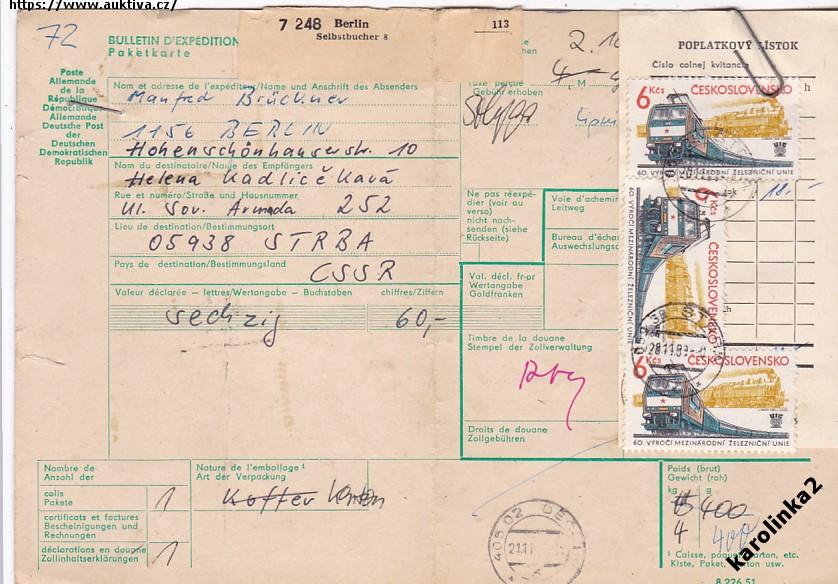 https://www.auktiva.cz/
72
BULLETIN D'EXPÉDITION
Paketkarte
7 248 Berlin 113
Selbstbucher 8
Poste
Allemande
de la
République
Démocratique
Allemande
Deutsche Post
der
Deutschen
Demokratischen
Republik
Nom et adresse de l'expéditeur/Name und Anschrift des Absenders
Manfred Brückner
1156 BERLIN
Hohenschönhauserstr. 10
Nom du destinataire/Name des Empfängers
Helena Kadličeková
Rue et numéro/Straße und Hausnummer
Ul. Sov. Armada 252
Lieu de destination/Bestimmungsort
05938 STRBA
Pays de destination/Bestimmungsland
CSSR
Valeur déclarée - lettres/Wertangabe - Buchstaben chiffres/Ziffern
sechzig 60,-
Taxe perçue
Gebühr erhoben
M
Ne pas réexpé-
dier (voir au
verso)
nicht nach-
senden (siehe
Rückseite)
Voie d'achemi
Leitweg
Bureau d'écha
Auswechslungs
Val. décl. fr-or
Wertangabe
Goldfranken
Timbre de la douane
Stempel der Zollverwaltung
Droits de douane
Zollgebühren
POPLATKOVÝ LÍSTOK
Číslo colnej kvitancie
6 Kčs ČESKOSLOVENSKO
60. VÝROČÍ MEZINÁRODNÍ ŽELEZNIČNÍ UNIE
6 Kčs
ČESKOSLOVENSKO
60. VÝROČÍ MEZINÁRODNÍ ŽELEZNIČNÍ UNIE
6 Kčs ČESKOSLOVENSKO
60. VÝROČÍ MEZINÁRODNÍ ŽELEZNIČNÍ UNIE
UIC
Nombre de
Anzahl der
colis
Pakete
1
certificats et factures
Bescheinigungen und
Rechnungen
déclarations en douane
Zollinhaltserklärungen
1
Nature de l'emballage¹
Art der Verpackung
Koffer Karton
405 02 DEC
Poids (brut)
Gewicht (roh)
kg g
400
4 400
¹ Caisse, paquet, carton, etc.
Kiste, Paket, Karton usw.
8 226 51
karolinka2